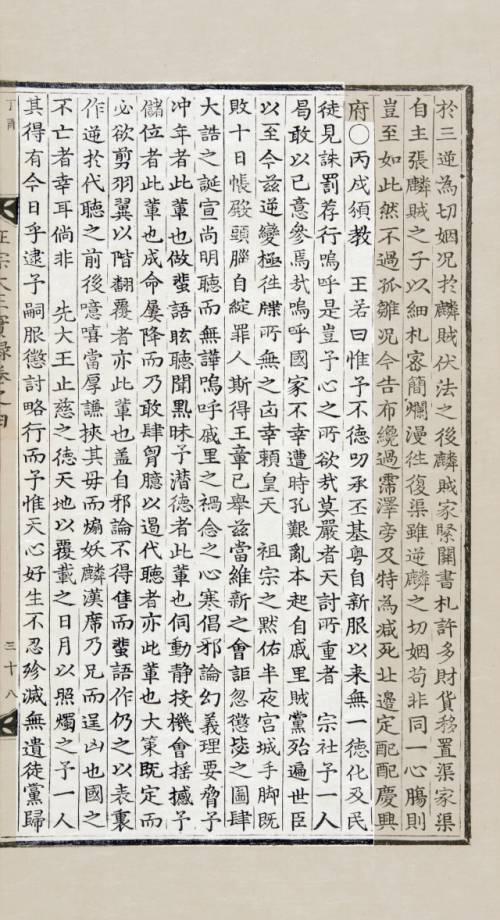 於三逆為切姻况於麟賊伏法之後麟賊家緊關書札許多財貨移置渠家渠
自主張麟賊之子以細札密簡爛漫往復渠雖逆麟之切姻苟非同一心膓則
豈至如此然不過孤雛况今告布纔過霈澤旁及特為减死圵邊定配配慶興
府○丙戌須教 王若曰惟予不德叨承丕基粤自新服以来無一德化及民
徒見誅罰荐行嗚呼是豈予心之所欲哉莫嚴者天討所重者 宗社予一人
曷敢以已意參焉哉嗚呼國家不幸遭時孔艱亂本起自戚里賊黨殆遍世臣
以至今兹逆變極徃牒所無之凶幸頼皇天 祖宗之黙佑半夜宮城手脚既
敗十日帳殿頭腦自綻罪人斯得王章已舉兹當維新之會詎忽懲毖之圖肆
大誥之誕宣尚明聴而無譁嗚呼戚里之禍念之心寒倡邪論幻義理要脅予
冲年者此軰也做蜚語眩聴聞㸃昧予潛德者此軰也伺動静按機會揺撼予
儲位者此軰也成命屡降而乃敢肆胷臆以遏代聴者亦此軰也大策既定而
必欲剪羽翼以階翻覆者亦此軰也盖自邪論不得售而蜚語作仍之以表裏
作逆於代聴之前後噫嘻當厚謙挾其母而煽妖麟漢席乃兄而逞凶也國之
不亡者幸耳倘非 先大王止慈之德天地以覆載之日月以照燭之予一人
其得有今日乎逮予嗣服懲討略行而予惟天心好生不忍殄滅無遺徒黨歸
丁酉
正宗大王實録卷之四
三十八